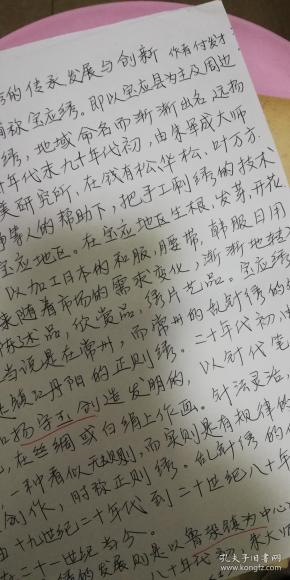 的传承发展与创新 作者付发才
简称宝应绣。即以宝应县为主及周边
绣,地域命名而渐渐出名,远扬
十年代末九十年代初,由朱军成大师
美研究所,在钱有松伴松、叶方方
等人的帮助下,把手工刺绣的技术
宝应地区。在宝应地区生根,发芽,开花
以加工日本的和服,腰带,韩服日用
来随着市场的需求变化,渐渐地转
陈述品,欣赏品,绣片艺品。宝应绣
当说是在常州,而常州的乱针绣的
是镇江丹阳的正则绣。二十年代初由
吕扬字玉创造发明的,以针代笔
,在丝绸或白绢上作画。针法灵活,
一种看似无规则,而实则是有规律的
创作,时称正则绣。乱针绣的
由十九世纪二十年代到二十世纪八十年
二十一世纪当今。
绣的发展则是以鲁垛镇为中心
十年代 朱大师
孔夫子旧书网